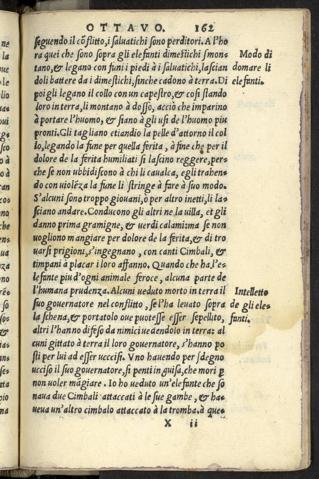 OTTAVO. 162
seguendo il cõflitto, i saluatichi sono perditori. A l'ho
ra quei che sono sopra gli elefanti dimestichi smon-
tano, & legano con funi i piedi à i saluatichi, lascian
doli battere da i dimestichi, finche cadono à terra. Di
poi gli legano il collo con un capestro, & cosi stando
loro in terra, li montano à dosso, acciò che imparino
à portare l'huomo, & siano à gli usi de l'huomo piu
pronti. Gli tagliano etiandio la pelle d'attorno il col
lo, legando la fune per quella ferita, à fine che per il
dolore de la ferita humiliati si lascino reggere, pero
che se non ubbidiscono à chi li caualca, egli trahen-
do con uiolẽza la fune li stringe à fare à suo modo.
S'alcuni sono troppo giouani, ò per altro inetti, li la-
sciano andare. Conducono gli altri ne la uilla, et gli
danno prima gramigne, & uerdi calami: ma se non
uogliono mangiare per dolore de la ferita, & di tro
uarsi prigioni, s'ingegnano, con canti Cimbali, &
timpani à placar i loro affanno. Quando che ha, l'e-
lefante piu d'ogni animale feroce, alcuna parte de
l'humana prudenza. Alcuni ueduto morto in terra il
suo gouernatore nel conflitto, se l'ha leuato sopra
la schena, & portatolo oue puotesse esser sepellito,
altri l'hanno difeso da nimici uedendolo in terra: al
cuni gittato à terra il loro gouernatore, s'hanno po
sti per lui ad esser uccisi. Vno hauendo per sdegno
ucciso il suo gouernatore, si penti in guisa, che mori p
non uoler mãgiare. Io ho ueduto un'elefante che so
naua due Cimbali attaccati à le sue gambe, & ha-
ueua un'altro cimbalo attaccato à la tromba. à que-
X ii
Modo di
domare li
elefanti.
Intelletto
de gli ele-
fanti.